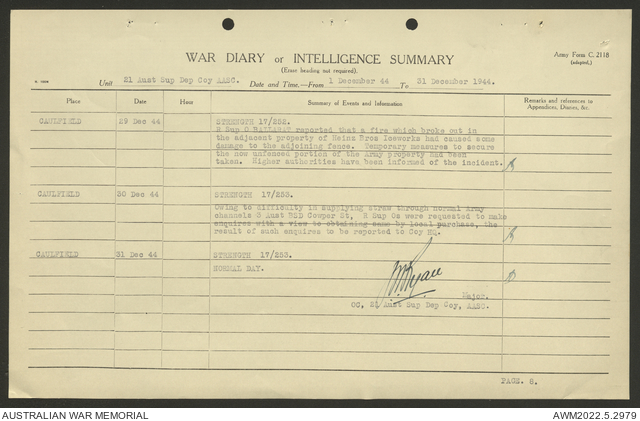 WAR DIARY or INTELLIGENCE SUMMARY
Army Form C. 2118
(adapted.)
(Erase heading not required).
Unit 21 Aust Sup Dep Coy AASC. Date and Time.—From 1 December 44 To 31 December 1944.
Place Date Hour Summary of Events and Information Remarks and references to
Appendices, Diaries, &c.
CAULFIELD 29 Dec 44 STRENGTH 17/252.
R Sup O BALLARAT reported that a fire which broke out in
the adjacent property of Heinz Bros Iceworks had caused some
damage to the adjoining fence. Temporary measures to secure
the now unfenced portion of the Army property had been
taken. Higher authorities have been informed of the incident.
CAULFIELD 30 Dec 44 STRENGTH 17/253.
Owing to difficulty in supplying straw through normal Army
channels 3 Aust BSD Cowper St, R Sup Os were requested to make
enquires with a view to obtaining same by local purchase, the
result of such enquires to be reported to Coy HQ.
CAULFIELD 31 Dec 44 STRENGTH 17/253.
NORMAL DAY.
Major.
OC, 21 Aust Sup Dep Coy, AASC.
PAGE. 8.
AUSTRALIAN WAR MEMORIAL AWM2022.5.2979